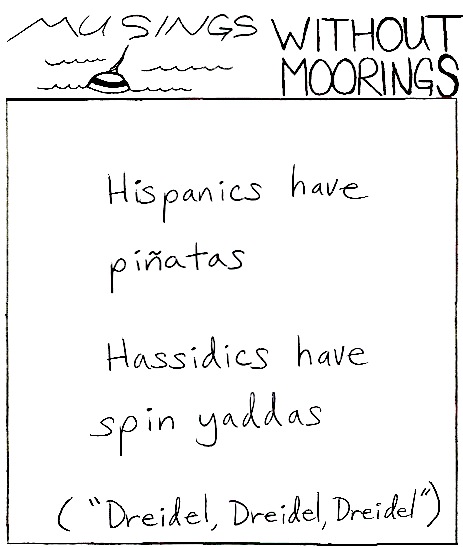 MUSINGS WITHOUT
MOORINGS
Hispanics have
piñatas
Hassidics have
spin yaddas
("Dreidel, Dreidel, Dreidel")